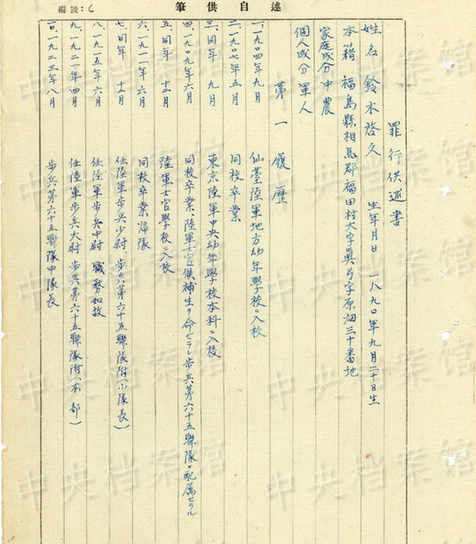 自述供筆
編號: 6
罪行供述書
姓名 鈴木啓久 生年月日 一八九〇年九月二十日生
本籍 福島縣相馬郡福田村大字真弓字原畑三十番地
家庭成分 中農
個人成分 軍人
第一 履歴
一、一九〇四年九月 仙臺陸軍地方幼年學校ニ入校
二、一九〇七年五月 同校卒業
三、同年 九月 東京陸軍中央幼年學校本科ニ入校
四、一九〇九年六月 同校卒業、陸軍士官候補生ヲ命セラレ歩兵第六十五聯隊ニ配属セラル
五、同年 十二月 陸軍士官學校ニ入校
六、一九一一年六月 同校卒業帰隊
七、同年 十二月 任陸軍歩兵少尉 歩兵第六十五聯隊附(小隊長)
八、一九一五年六月 任陸軍歩兵中尉 職務如故
九、一九二一年四月 任陸軍歩兵大尉 歩兵第六十五聯隊附(本部)
一〇、一九二三年八月 歩兵第六十五聯隊中隊長
中央档案館
中央档案館
中央档案館